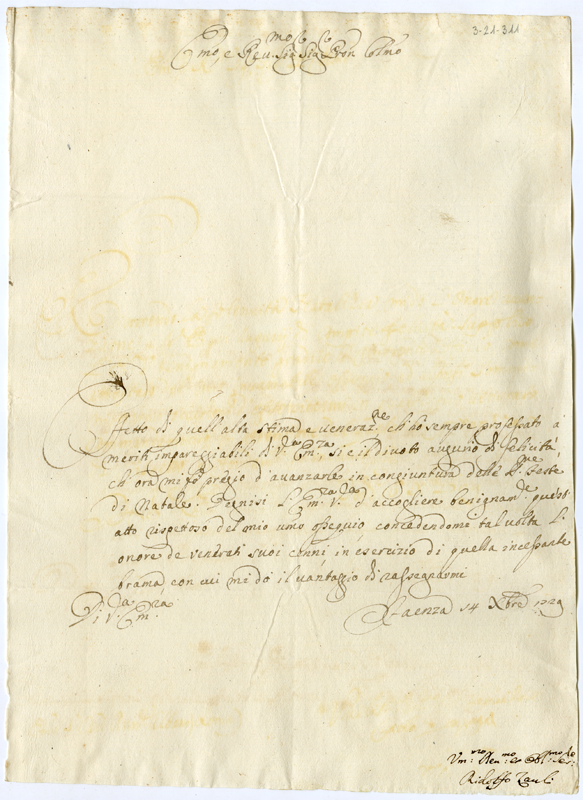 3-21-311
Emo, e Reu. mo Sig. Sig. Pron Colmo
Effetto di quell'alta stima e veneraz.ne ch'hò sempre professato a
meriti impareggiabili di V.ra Em.za, si è il divoto augurio di felicità,
ch'ora mi pregio d'avanzarle in congiuntura delle Feste
di Natale. Degnisi l'Em.za V.ra d'accogliere benignam.te questo
atto rispettoso del mio umo ossequio, concedendomi tal volta l'
onore de venerati suoi cenni in esercizio di quella incessante
brama, con cui mi dò il vantaggio di rassegnarmi
Di V.ra Em.za
Faenza 14 Xbre 1729
Um: Deu:
Ridolfo Zauli